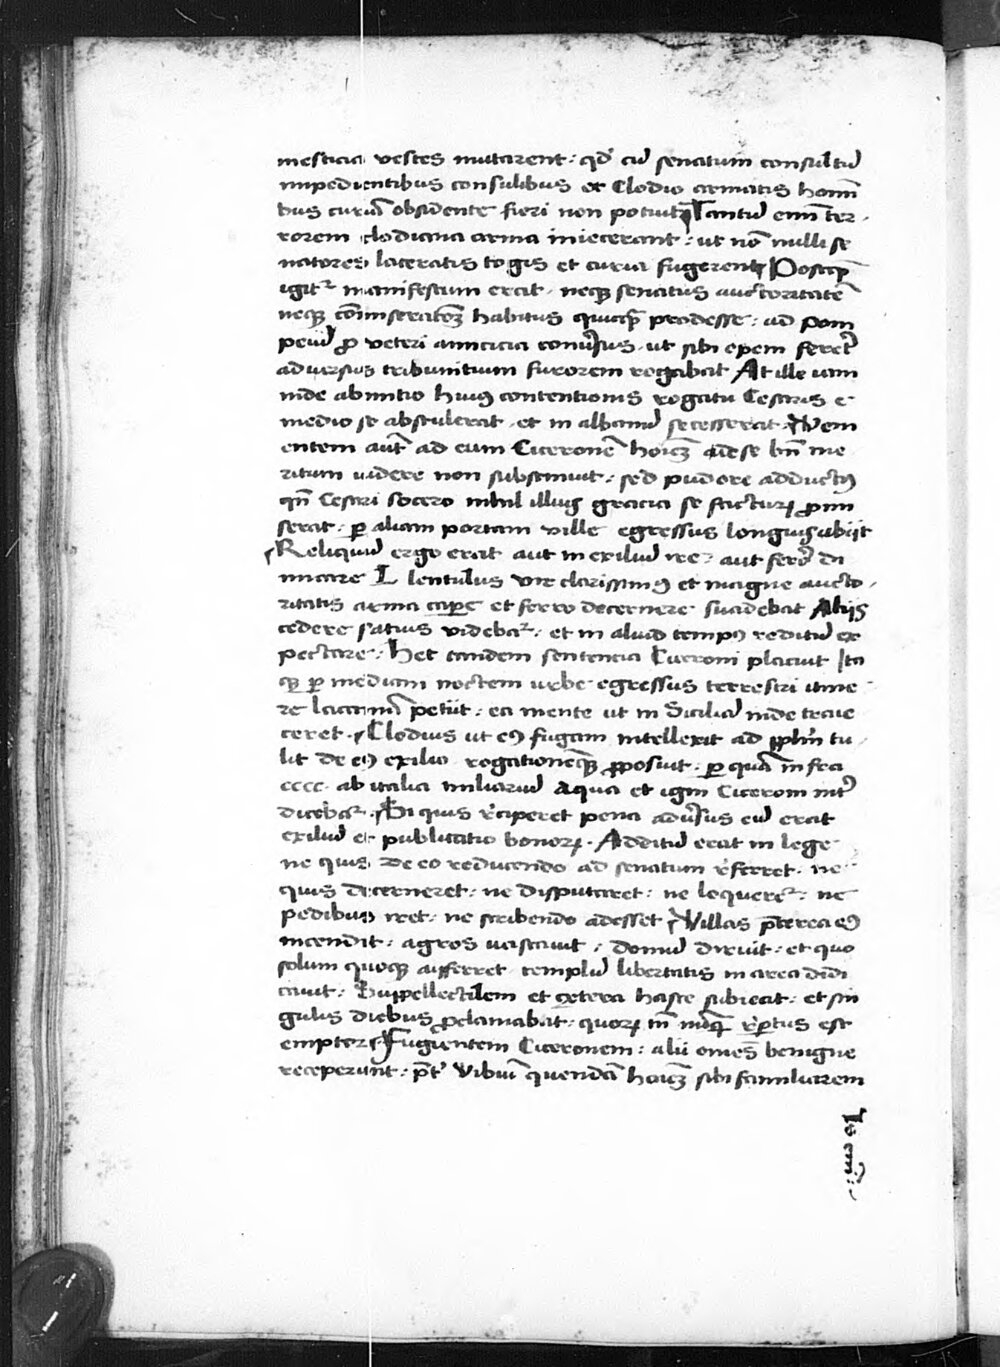 mesticia vestes mutarent: qđ cū senatum consultū
impedientibus consulibus et Clodio armatis homī
bus curiā obsidente fieri non potuit Tantū enī ter-
rorem clodiana arma iniecerant: ut nō nulli se
natores laceratis togis et curia fugerent Postqȝ
igit᷑ manifestum erat neqȝ senatus auctoritatē
neqȝ cōmiseratōȝ habitus quicqȝ prodesse: ad pom
peiū ꝓ veteri amicicia conūsus ut sibi opem feret᷑
adversus tribunitium furorem rogabat At ille iam
inde ab initio huiꝰ contentionis rogatu Cesaris e
medio se abstulerat et in albanū secesserat Veni
entem aut̄ ad eum Ciceronē hoīeȝ de se bn̄ me
ritum videre non substinuit: sed pudore adductꝰ
qn̄ Cesari socero nihil illius gracia se facturꝝ ꝓmi
serat: ꝑ aliam portam ville egressus longius abijt
Reliquū ergo erat aut in exiliū ire: aut ferro di
micare L lentulus vir clarissimꝰ et magne aucto-
ritatis arma capē et ferro decernere suadebat Alijs
cedere satius videbat᷑: et in aliud tempꝰ reditū ex
pectare: Hec tandem sentencia Ciceroni placuit Ita
qȝ ꝑ mediam noctem urbe egressus terrestri itine
re lucaniā petiit: ea mente ut in Siciliā inde traiie
ceret. Clodius ut eꝰ fugam intellexit ad pplm̄ tu
lit de eꝰ exilio rogationēqȝ ꝓposuit: ꝑ quā infra
cccc ab italia miliariū aqua et igni Ciceroni int᷑
dicebat᷑. Si quis r̄ciperet pena adūsus eū erat
exiliū et publicatio bonorꝝ. Additū erat in lege
ne quis de eo reducendo ad senatum r̄ferret ne
quis decerneret: ne disputaret: ne loqueret᷑: ne
pedibus iret: ne scribendo adesset Villas p̄terea eꝰ
incendit: agros vastavit: domū diruit: et quo
solum quoqȝ aufferret templū libertatis in area dedi
cavit: Supellectilem et cetera haste subiecit: et sin
gulis diebus ꝓclamabat: quorꝝ tn̄ nūqȝ r̄ꝑtus est
emptor Fugientem Ciceronem: alii omēs benigne
receperunt: p̄t᷑ Vibiū quendā hoīeȝ sibi familiarem